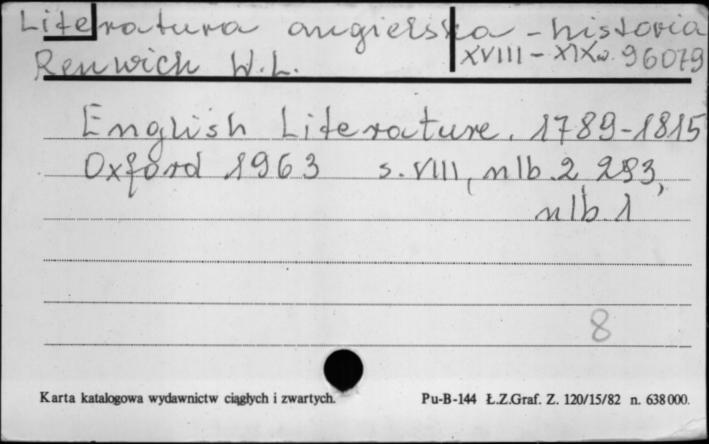 Literatura angielska - historia
XVIII - XIXw. 96079
Renwich W.L.
English Literature. 1789-1815
Oxford 1963 s. VIII, nlb. 2 293,
nlb. 1
8
Karta katalogowa wydawnictw ciągłych i zwartych.
Pu-B-144 Ł.Z.Graf. Z. 120/15/82 n. 638000.